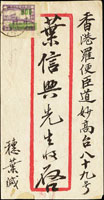 香港羅便臣道妙高台八十九号
葉信興先生收啓
穗葉緘